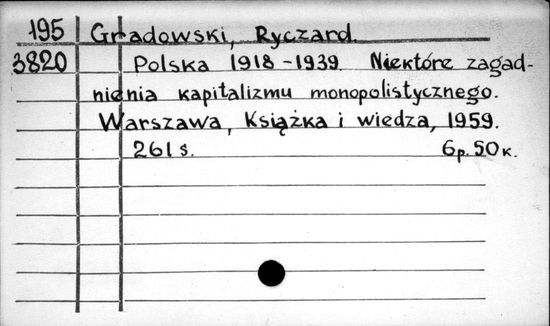 195 Gradowski, Ryczard.
3820 Polska 1918-1939. Niektóre zagad-
nienia kapitalizmu monopolistycznego.
Warszawa, Książka i wiedza, 1959.
261 s. 6р. 50к.